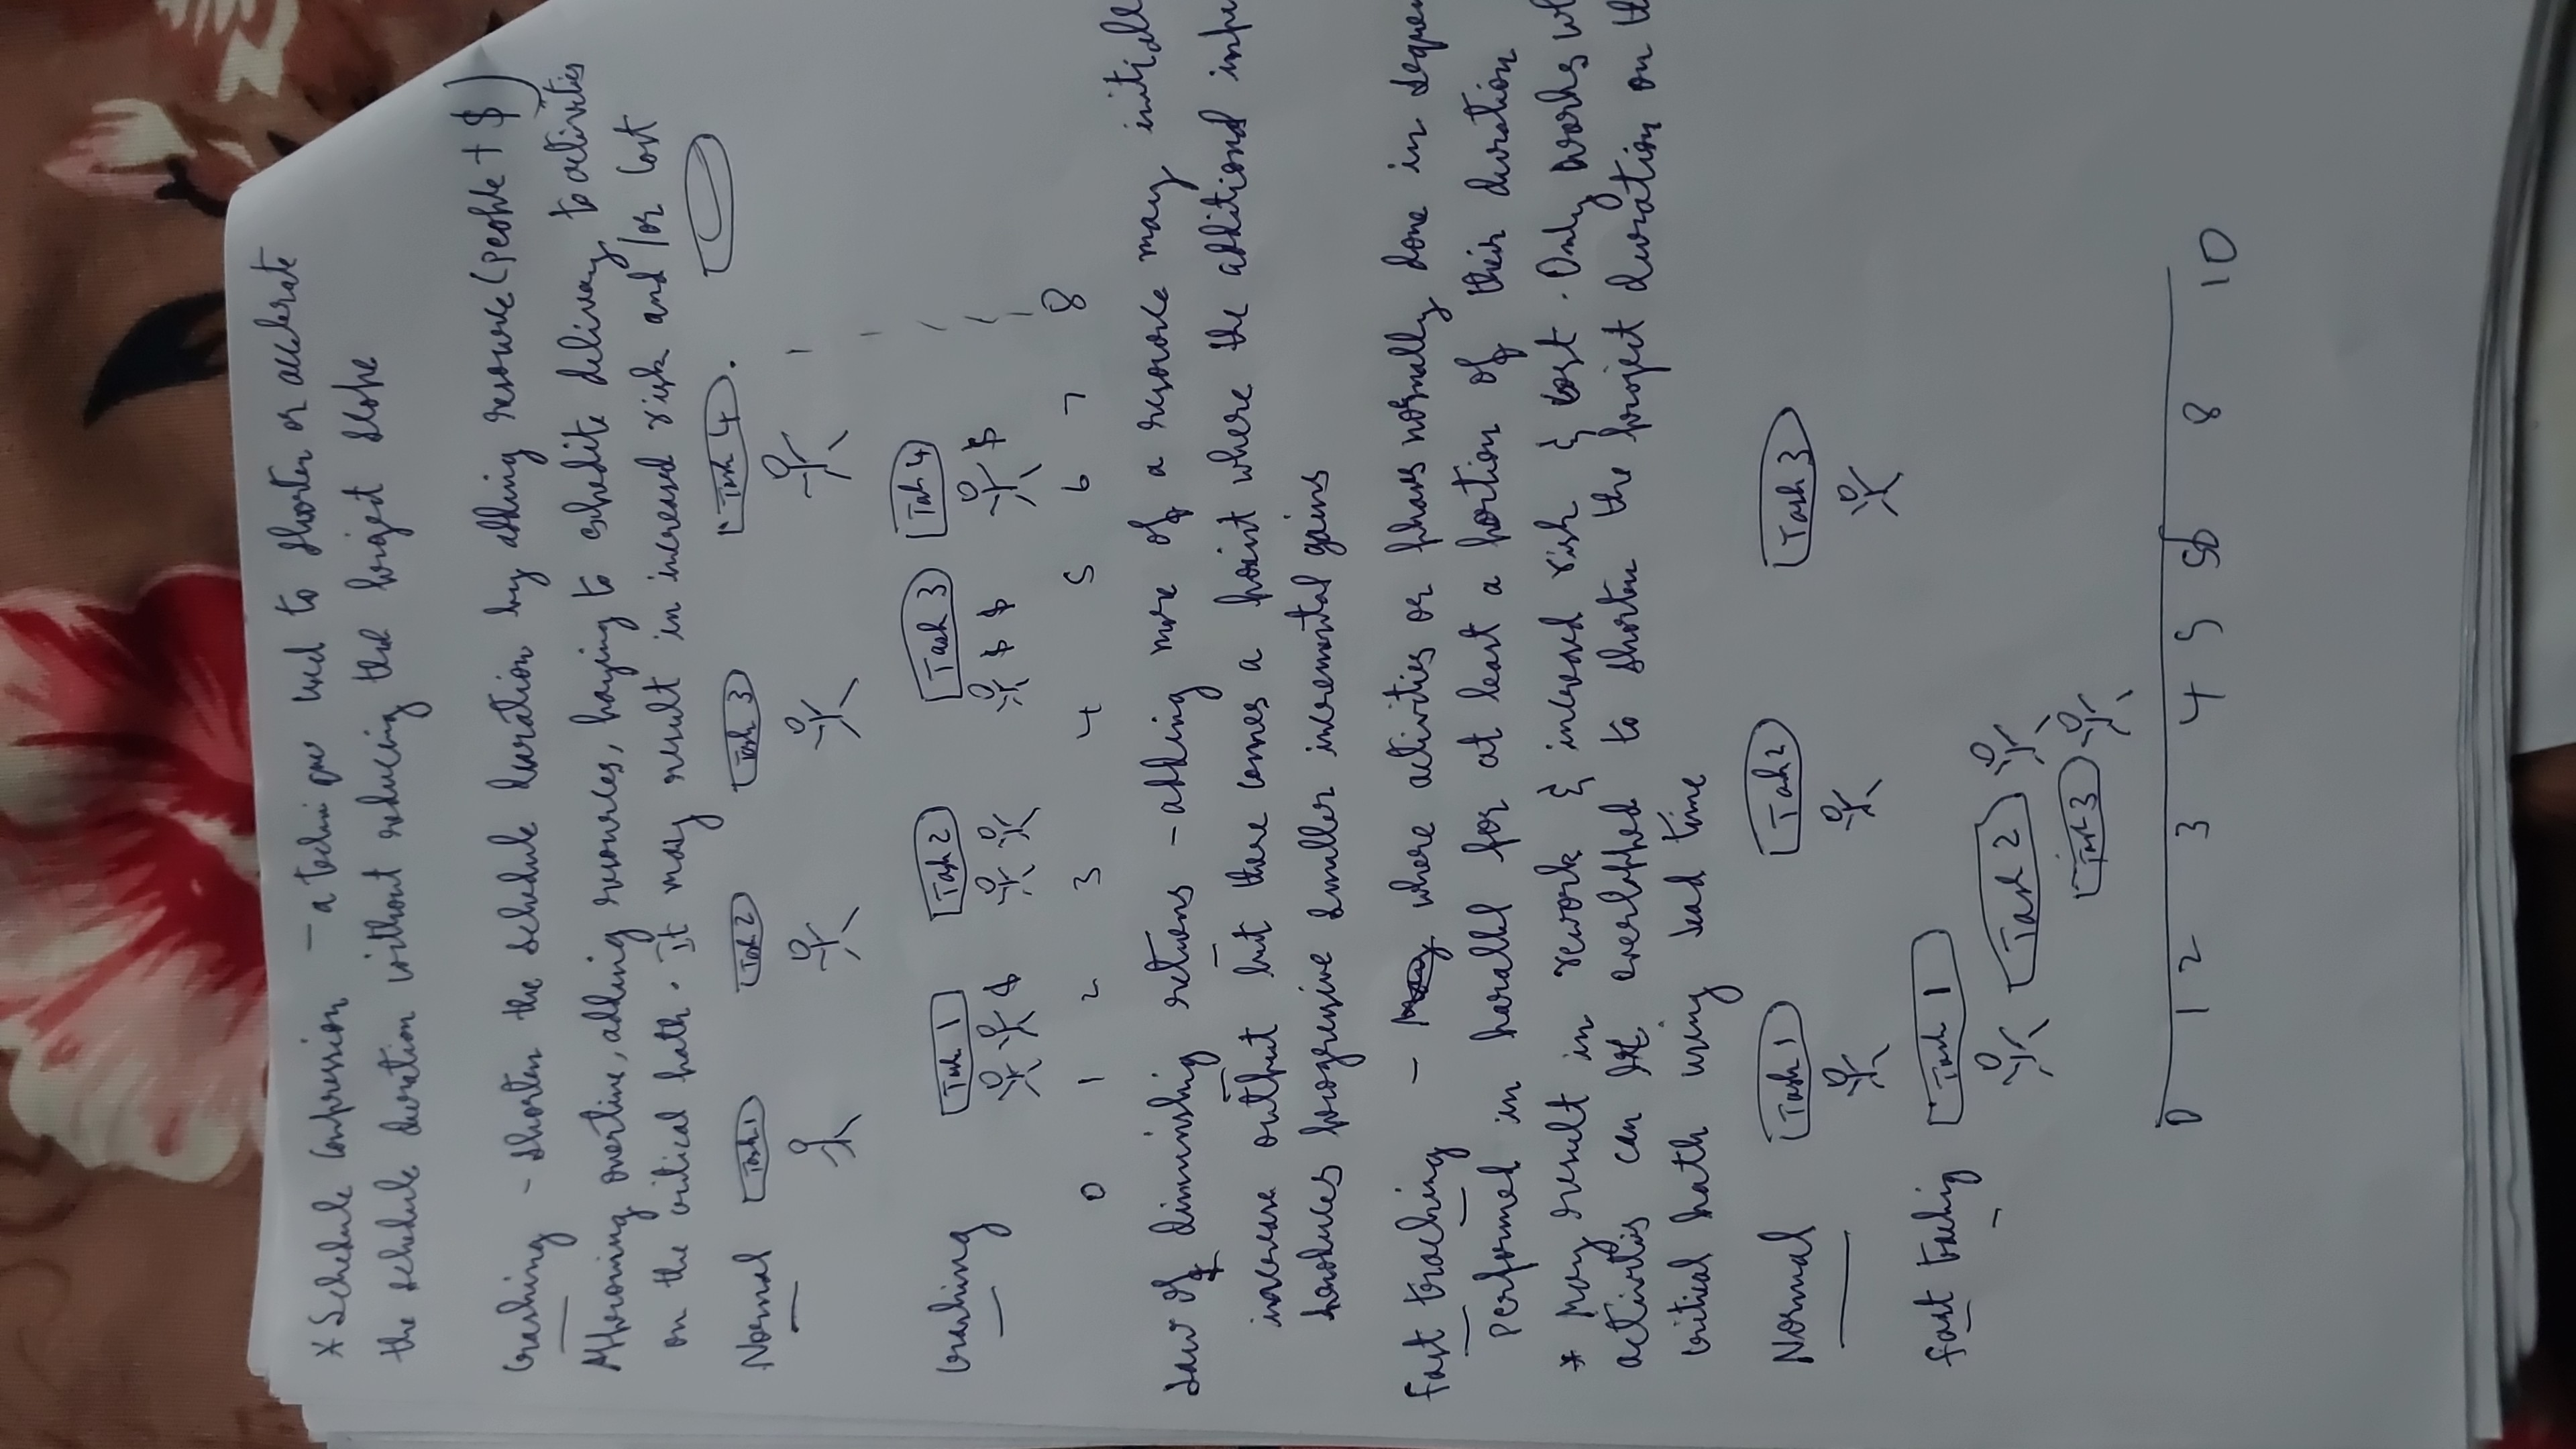 * Schedule Compression - a technique used to shorter or acclerate
the schedule duration without reducing the project scope
Crashing - shorten the schedule duration by adding resource (people + $)
Approving overtime, adding resources, paying to expedite delivary to activities
on the critical path. It may result in increased risk and/or cost
Normal Task 1 Task 2 Task 3 Task 4.
Crashing Task 1 Task 2 Task 3 Task 4
$ $ $ $
0 1 2 3 4 5 6 7 8
Law of diminishing returns - adding more of a resource may initiall
increase output but there comes a point where the additional inpu
produces progressive smaller incremental gains
Fast tracking - where activities or phases normally done in sequen
performed in parallel for at least a portion of their duration
* May result in rework & increased risk & cost. Only works wh
activities can be overlapped to shorten the project duration on th
critical path using lead time
Normal Task 1 Task 2 Task 3
Fast traking Task 1
Task 2
Task 3
0 1 2 3 4 5 8 10